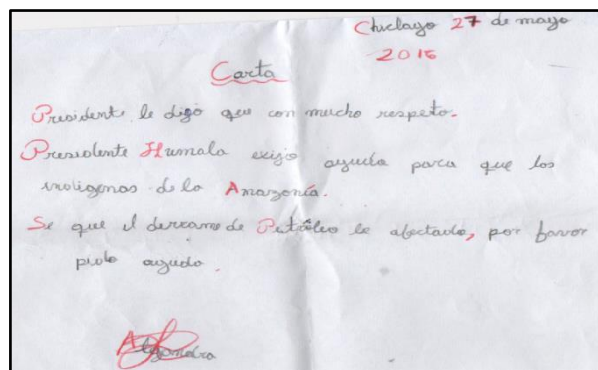 Chiclayo 27 de mayo
2016
Carta
Presidente le digo que con mucho respeto.
Presidente Humala exijo ayuda para que los
indigenas de la Amazonía.
Se que el derrame de Petróleo le afectado, por favor
pido ayuda.
Alejandra